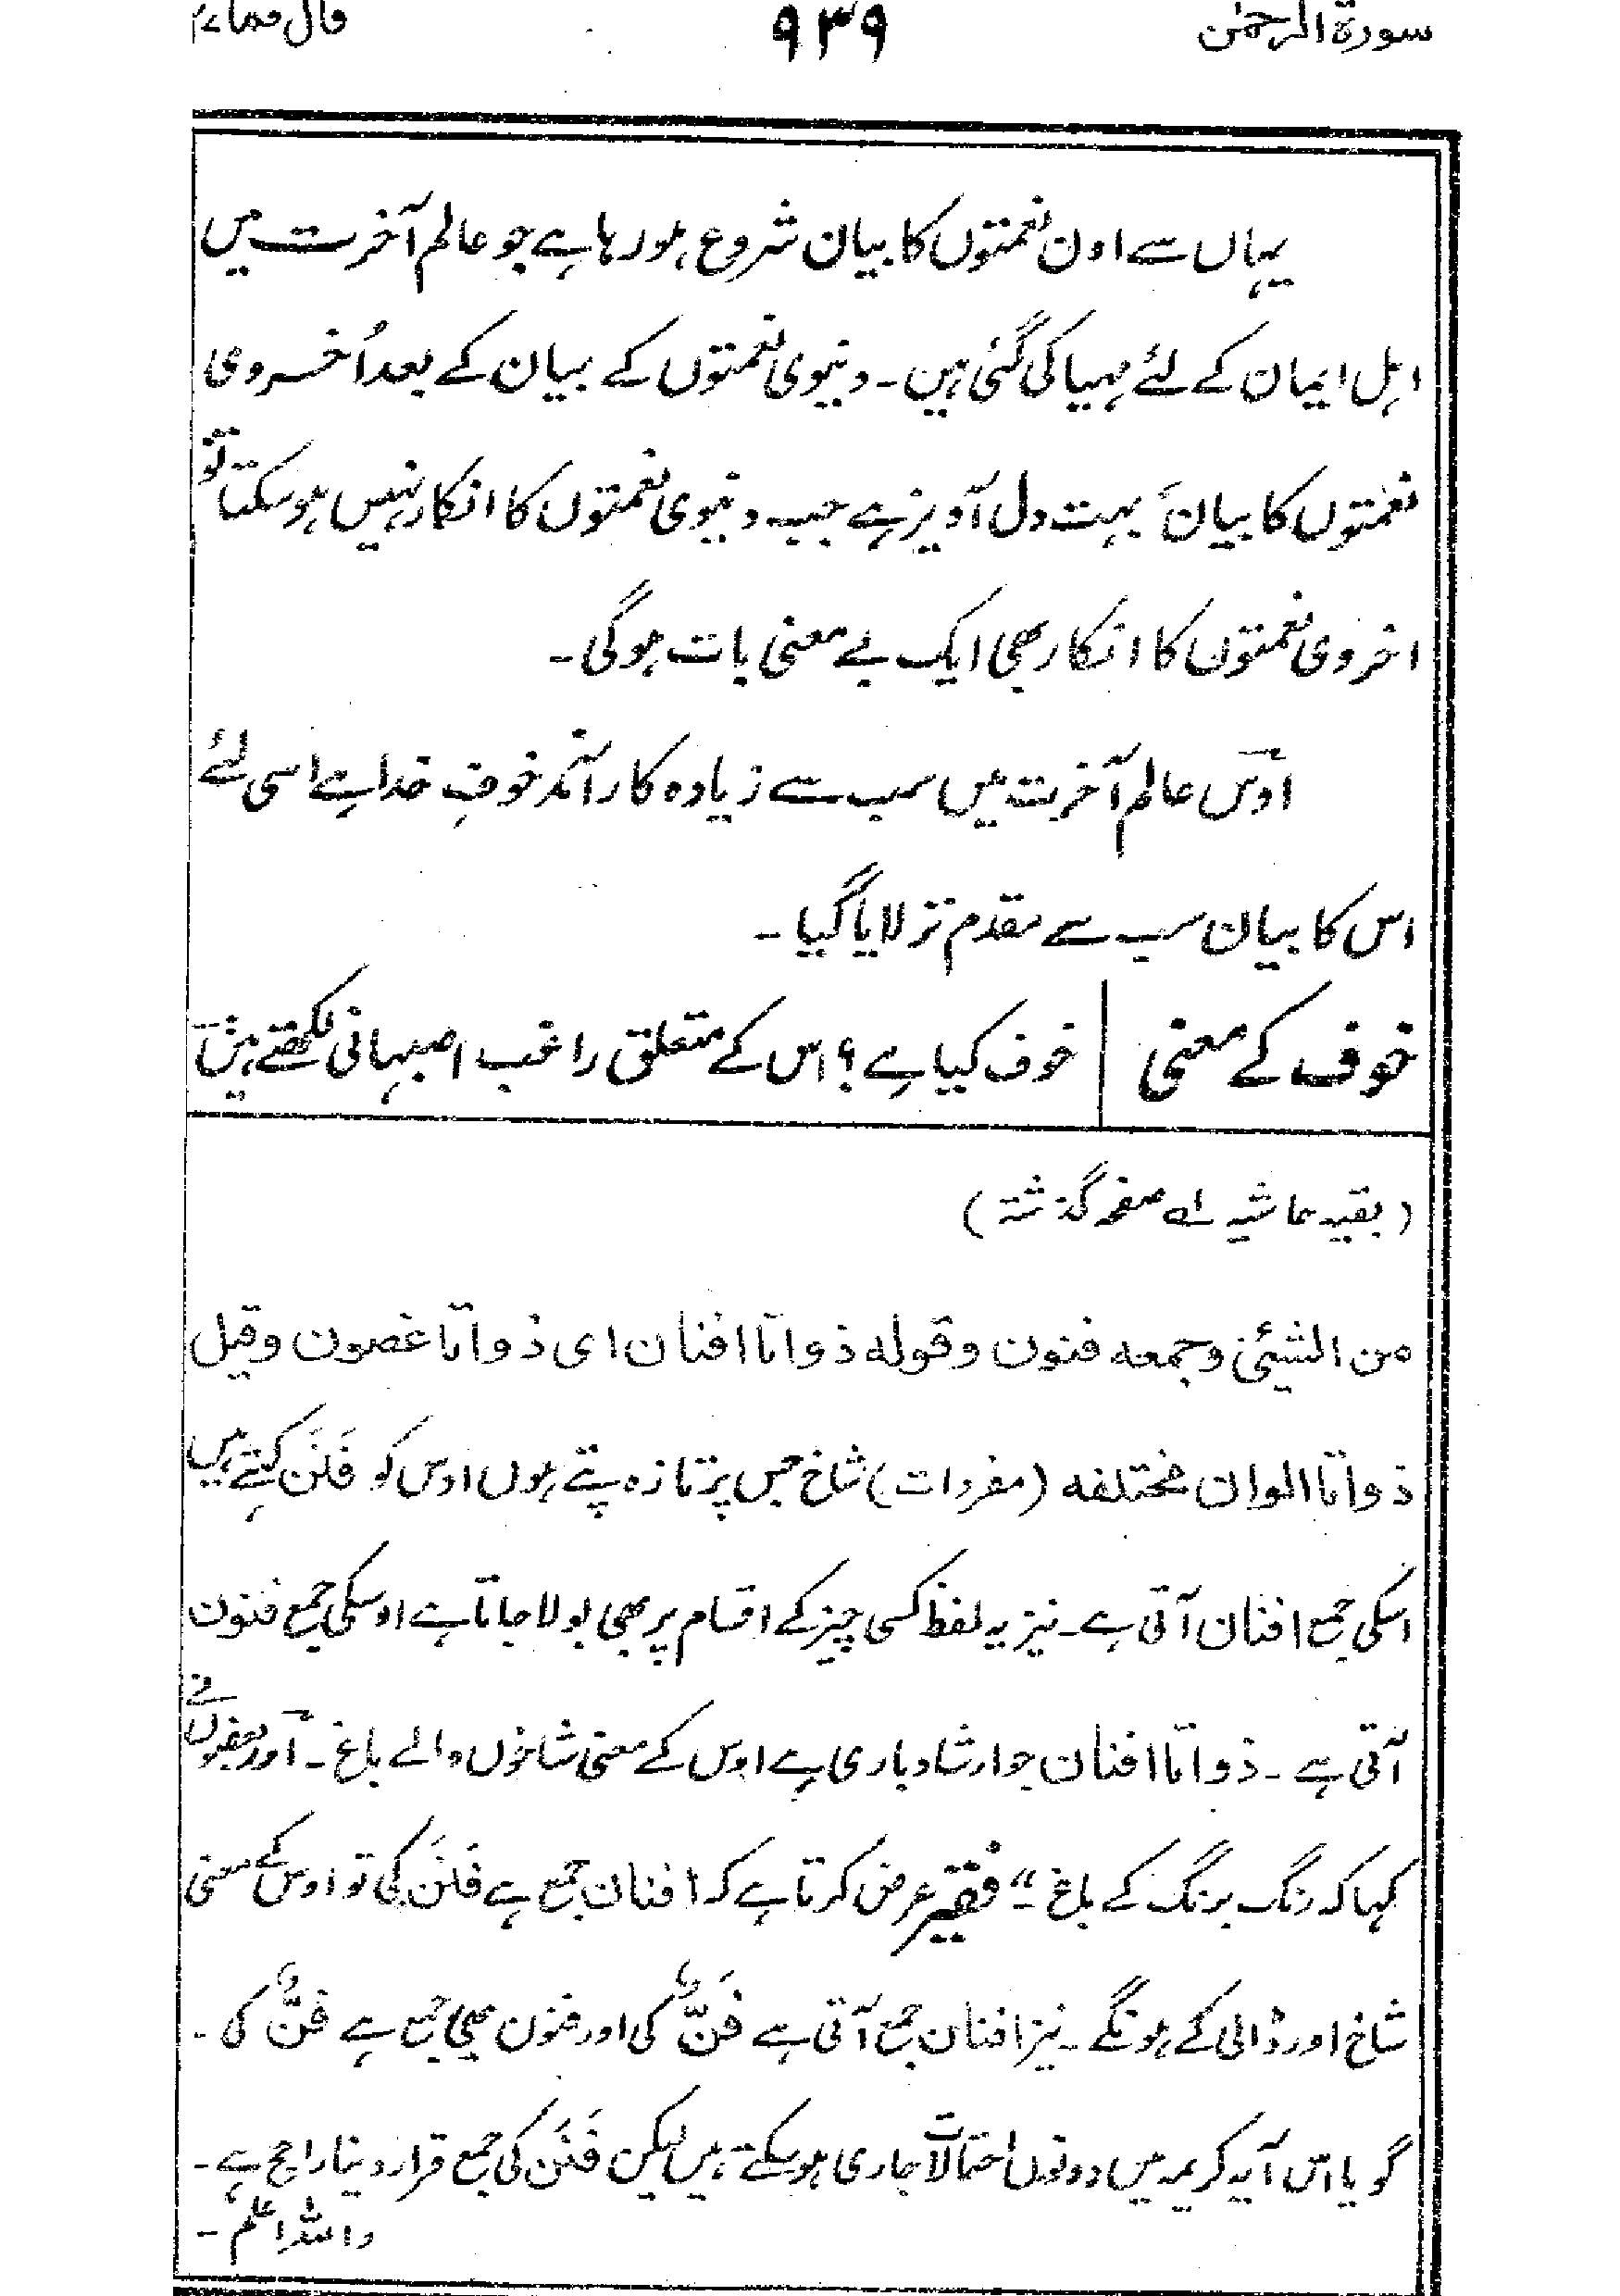 سورۃ الرحمٰن ۹۳۹ قال فما
یہاں سے اون نعمتوں کا بیان شروع ہو رہا ہے جو عالم آخرت میں
اہل ایمان کے لئے مہیا کی گئی ہیں۔ دنیوی نعمتوں کے بیان کے بعد اُخروی
نعمتوں کا بیان بہت دل آویز ہے جب دنیوی نعمتوں کا انکار نہیں ہو سکتا تو
اخروی نعمتوں کا انکار بھی ایک بے معنی بات ہو گی۔
اوس عالم آخرت میں سب سے زیادہ کار آمد خوفِ خدا ہے اسی لئے
اس کا بیان سب سے مقدم تر لایا گیا۔
خوف کے معنی | خوف کیا ہے؟ اس کے متعلق راغب اصبہانی لکھتے ہیں
(بقیہ حاشیہ لہ صفحہ گذشتہ)
من الشیئ وجمعہ فنون وقولہ ذواتا افنان ای ذواتا غصون وقیل
ذواتا الوان مختلفہ (مفردات) شاخ جس پر تازہ پتے ہوں اوس کو فَنَن کہتے ہیں
اسکی جمع افنان آتی ہے۔ نیز یہ لفظ کسی چیز کے اقسام پر بھی بولا جاتا ہے اوسکی جمع فنون
آتی ہے۔ ذواتا افنان جو ارشاد باری ہے اوس کے معنی شاخوں والے باغ۔ اور بعضوں نے
کہا کہ رنگ برنگ کے باغ۔" فقیر عرض کرتا ہے کہ افنان جمع ہے فَنَن کی تو اوس کے معنی
شاخ اور ڈالی کے ہونگے۔ نیز افنان جمع آتی ہے فَنٌّ کی اور فنون بھی جمع ہے فنٌّ کی۔
گویا اس آیہ کریمہ میں دونوں احتمالات جاری ہو سکتے ہیں لیکن فَنَن کی جمع قرار دینا راجح ہے۔
واللہ اعلم۔